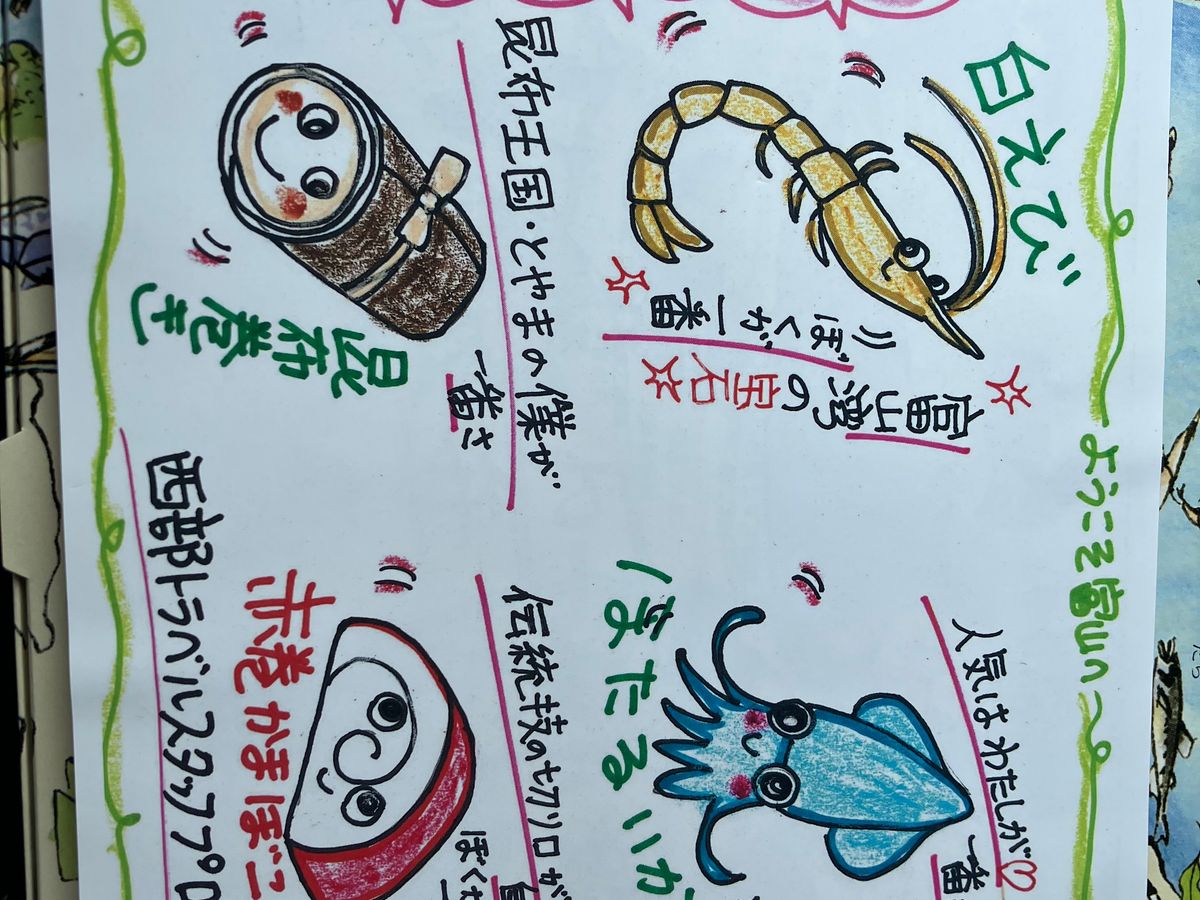 ようこそ富山へ〜
白えび
富山湾の宝石
ぼくが
一番
人気はわたしが♡
一番
ほたるいか
昆布王国・とやまの僕が
一番さ
昆布巻き
伝統技の
赤巻かまぼこ
西部トラベルスタッフプロ